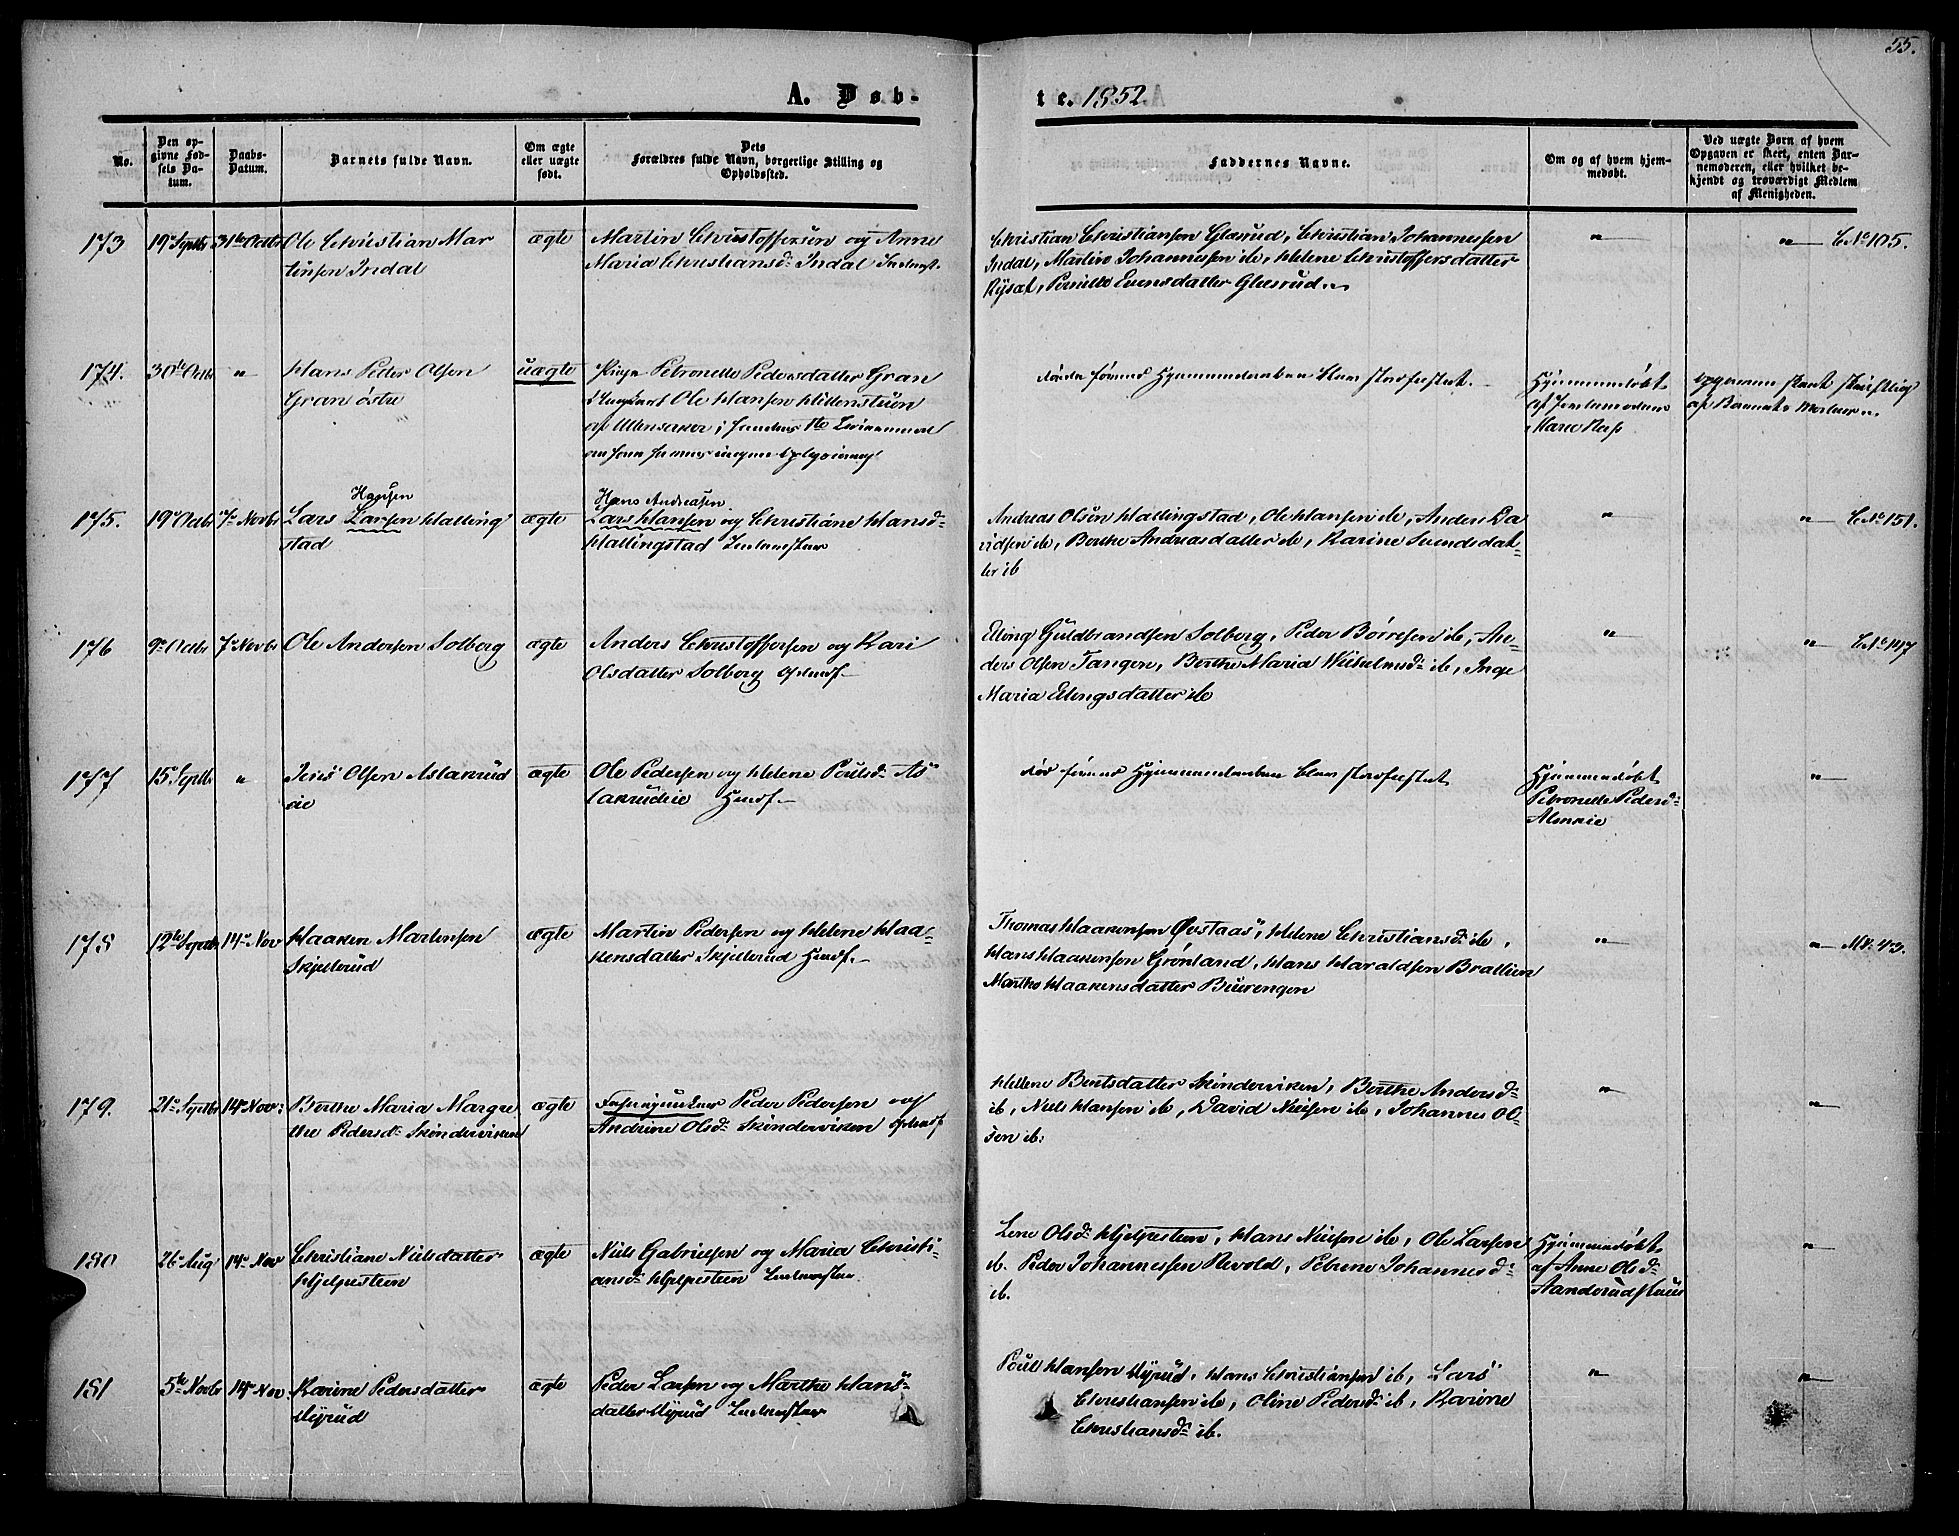 55.
A. Døb-
te. 1852.
No.
Den op-
givne Fød-
sels Da-
tum.
Daabs-
Datum.
Barnets fulde Navn.
Om ægte
eller uægte
født.
Dets
Forældres fulde Navn, borgerlige Stilling og
Opholdssted.
Faddernes Navne.
Om og af hvem hjem-
medøbt.
Ved uægte Børn af hvem
Opgaven er skeet, enten Bar-
nemoderen, eller hvilket be-
kjendt og troværdigt Medlem
af Menigheden.
173
19 Septbr
31te Octbr
Ole Christian Mar
tinsen Indal
ægte
Martin Christoffersen og Anne
Maria Christiansd: Indal
Christian Christiansen Glæsrud, Christian Johannessen
Indal, Martin Johannesen ib, Helene Christoffersdatter
Rysæt, Pernille Evensdatter Glæsrud
"
" C No 105.
174.
30te Octbr
"
Hans Peder Olsen
Gran østre
uægte
Pigen Petronelle Pedersdatter Gran
Ungkarl Ole Hansen
af Ullensaker
Hjemmedøbt
af Jordemoderen
af Barnets Moder
175.
19 Octbr
7 Novbr
Hansen
Lars Larsen Halling
stad
ægte
Hans Andreasen
Lars Hansen og Christiane Hansd:
Hallingstad
Andreas Olsen Hallingstad, Ole Hansen ib, Anders Da
vidsen ib, Berthe Andreasdatter ib, Karine Svendsdat-
ter ib
"
" C No 151.
176
9 Octbr
7 Novbr
Ole Andersen Solberg
ægte
Anders Christoffersen og Kari
Olsdatter Solberg
Eling Guldbrandsen Solberg, Peder Børresen ib, An-
ders Olsen Tangen, Berthe Maria ib, Inge
Maria Elingsdatter ib
"
" C No 147
177
15 Septbr
"
Jens Olsen Aslakrud
eie
ægte
Ole Pedersen og Helene Poulsd: As
lakrudeie Huusf.
Hjemmedøbt
Petronelle Pedersd:
"
178
12te Septbr
14 Nov
Haaken Martinsen
Skjellerud
ægte
Martin Pedersen og Helene Haa-
kensdatter Skjellerud Huusf.
Thomas Haakensen Øvstaas, Helene Christiansd: ib,
Hans Haakensen Grønland, Hans Haraldsen Brattlien
Marthe Haakensdatter
"
" Mk. 43.
179.
21 Septbr
14 Nov:
Berthe Maria Margre
the Pedersd: Skinderviken
ægte
Peder Pedersen og
Andrine Olsd: Skinderviken
Hellene Berntsdatter Skinderviken, Berthe Andersd:
ib, Niels Hansen ib, David Nielsen ib, Johannes Ol-
sen ib.
"
"
180
26 Aug
14 Nov
Christiane Nielsdatter
Hjelpesteen
ægte
Niels Gabrielsen og Maria Christi-
ansd: Hjelpesteen
Lene Olsd: Hjelpesteen, Hans Nielsen ib, Ole Larsen
ib. Peder Johannessen Revold, Petrine Johannesd:
ib.
Hjemmedøbt
af Anne Olsd:
"
181
5te Novbr
14 Nov
Karine Pedersdatter
Myrud
ægte
Peder Larsen og Marthe Hans-
datter Myrud
Poul Hansen Myrud, Hans Christiansen ib, Lars
Christiansen ib, Oline Pedersd: ib, Karine
Christiansd: ib.
"
"